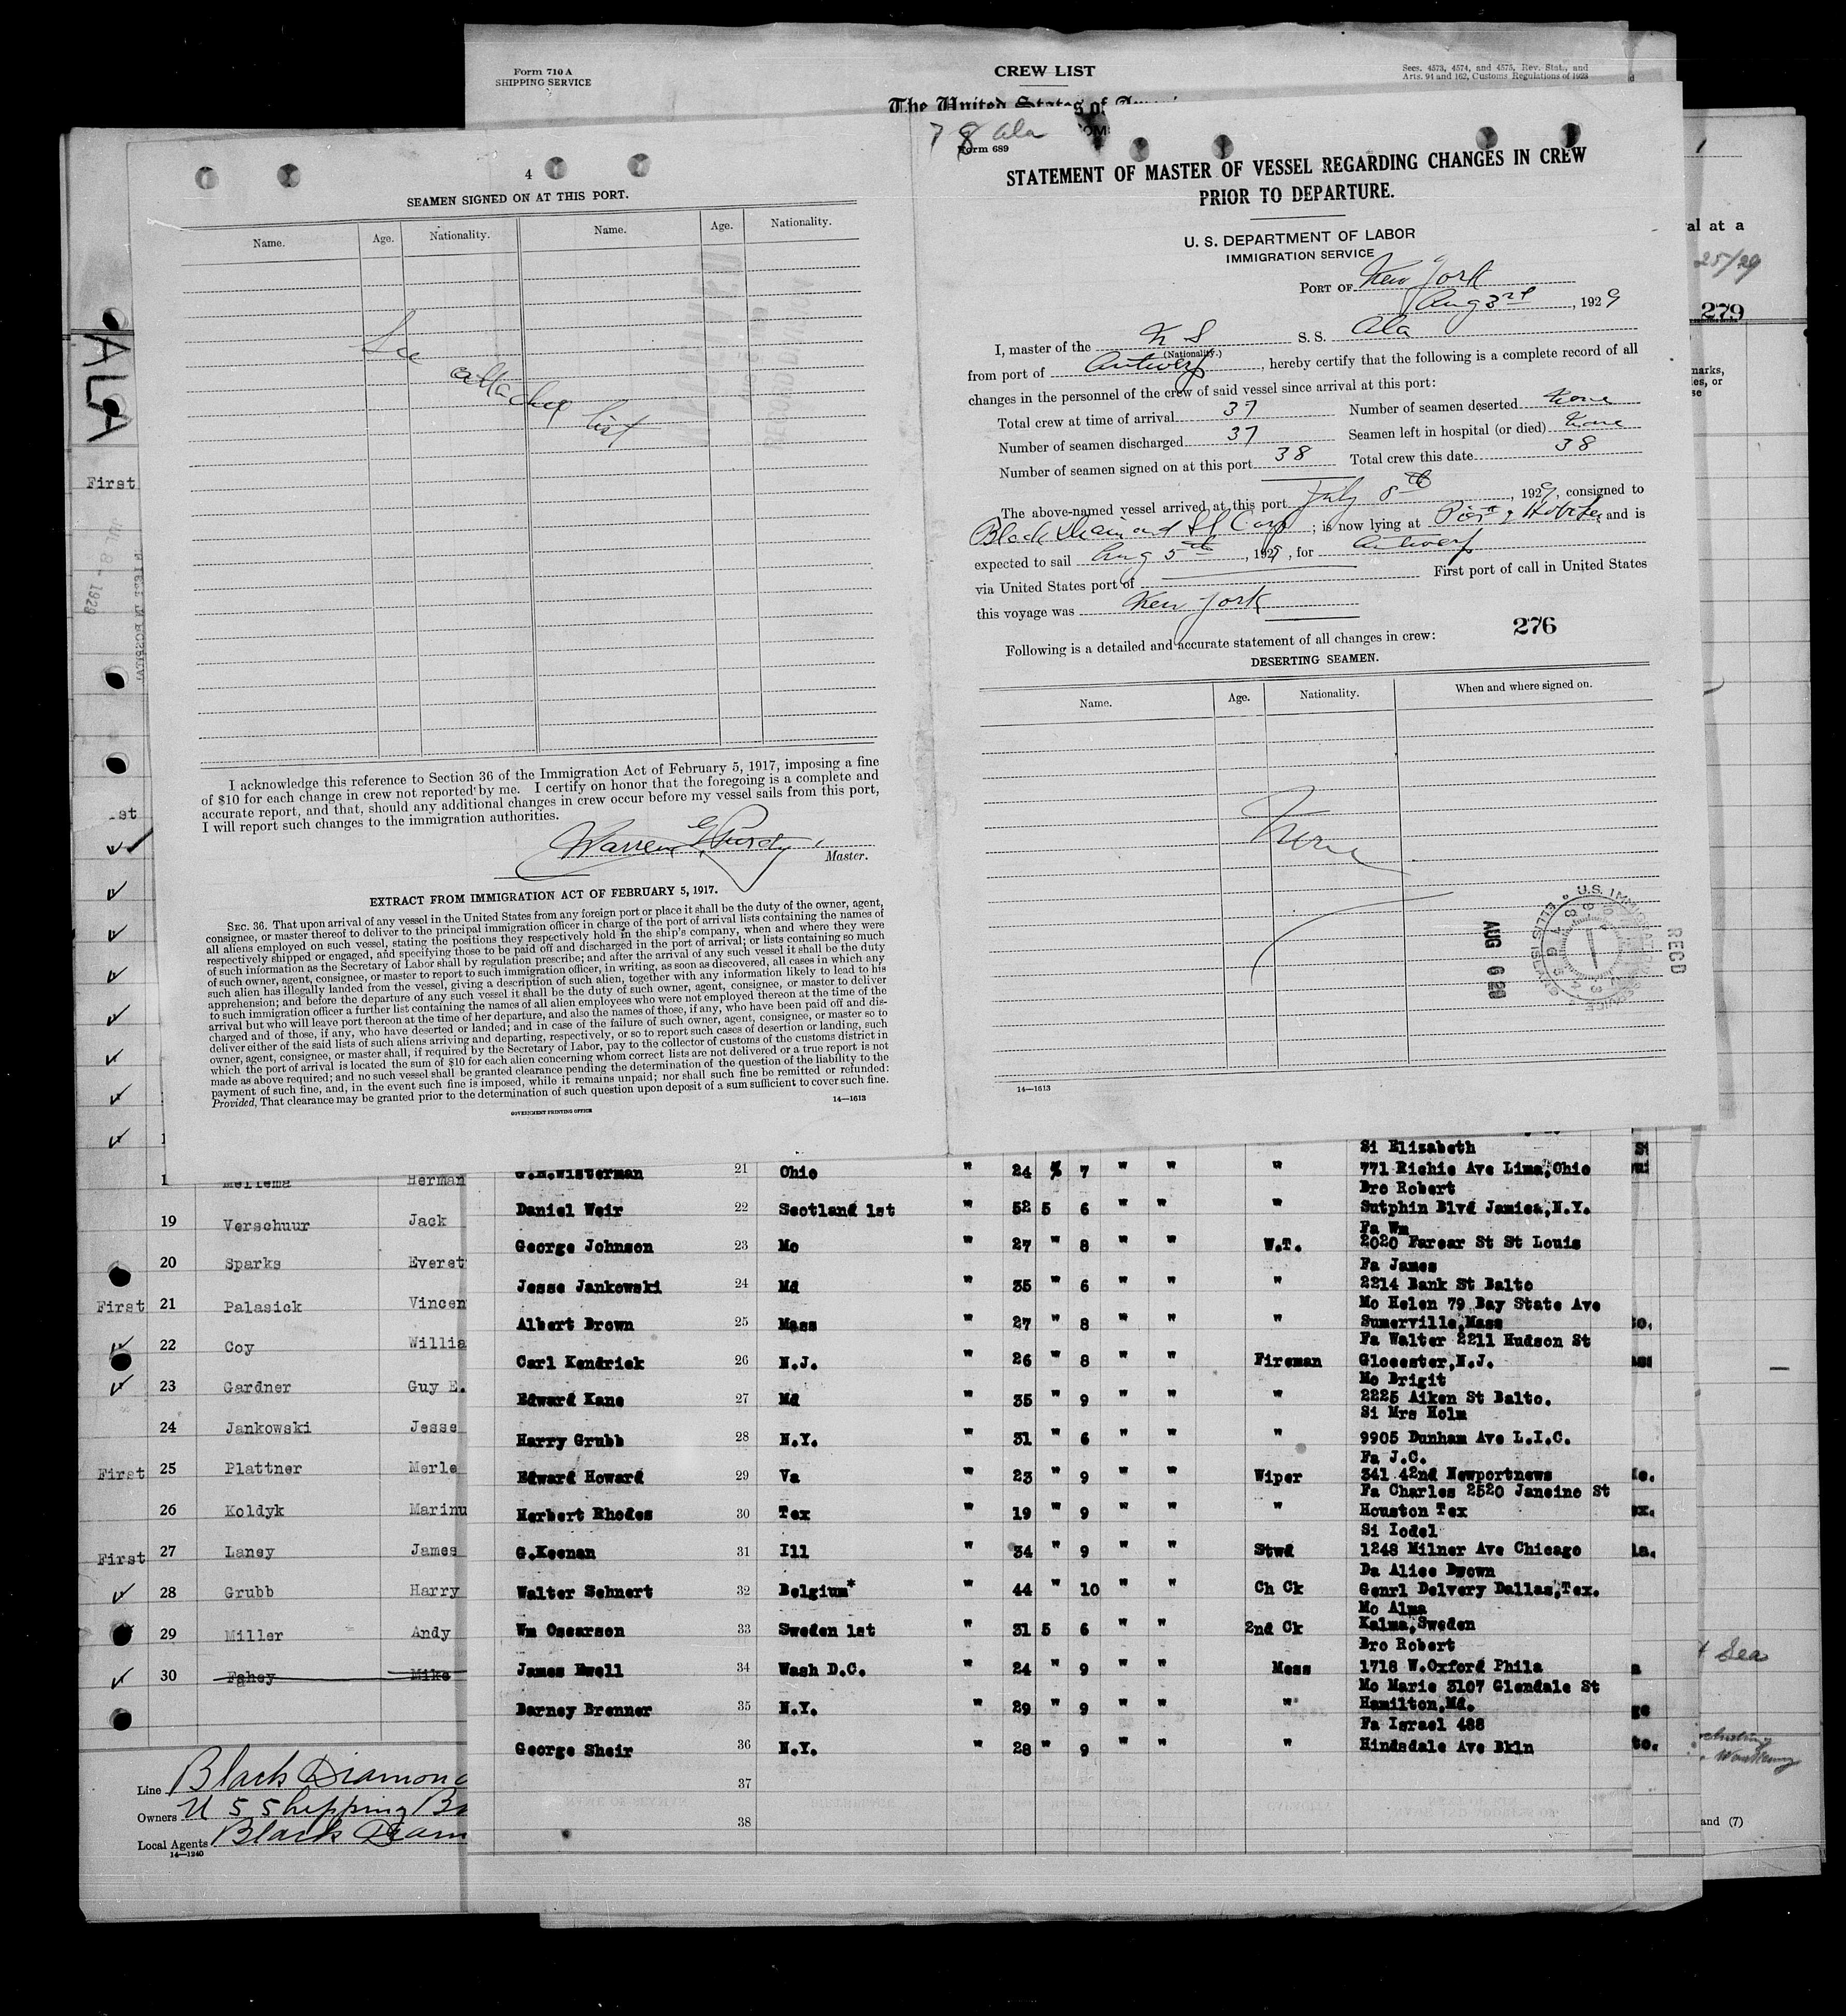 Form 710 A
SHIPPING SERVICE
CREW LIST
Secs. 4573, 4574, and 4575, Rev. Stat., and
Arts. 94 and 162, Customs Regulations of 1923
The United States of
4
SEAMEN SIGNED ON AT THIS PORT.
Name. Age. Nationality. Name. Age. Nationality.
See attached list
I acknowledge this reference to Section 36 of the Immigration Act of February 5, 1917, imposing a fine
of $10 for each change in crew not reported by me. I certify on honor that the foregoing is a complete and
accurate report, and that, should any additional changes in crew occur before my vessel sails from this port,
I will report such changes to the immigration authorities.
Warren G Purdy
Master.
EXTRACT FROM IMMIGRATION ACT OF FEBRUARY 5, 1917.
SEC. 36. That upon arrival of any vessel in the United States from any foreign port or place it shall be the duty of the owner, agent,
consignee, or master thereof to deliver to the principal immigration officer in charge of the port of arrival lists containing the names of
all aliens employed on such vessel, stating the positions they respectively hold in the ship's company, when and where they were
respectively shipped or engaged, and specifying those to be paid off and discharged in the port of arrival; or lists containing so much
of such information as the Secretary of Labor shall by regulation prescribe; and after the arrival of any such vessel it shall be the duty
of such owner, agent, consignee, or master to report to such immigration officer, in writing, as soon as discovered, all cases in which any
such alien has illegally landed from the vessel, giving a description of such alien, together with any information likely to lead to his
apprehension; and before the departure of any such vessel it shall be the duty of such owner, agent, consignee, or master to deliver
to such immigration officer a further list containing the names of all alien employees who were not employed thereon at the time of the
arrival but who will leave port thereon at the time of her departure, and also the names of those, if any, who have been paid off and dis-
charged and of those, if any, who have deserted or landed; and in case of the failure of such owner, agent, consignee, or master so to
deliver either of the said lists of such aliens arriving and departing, respectively, or so to report such cases of desertion or landing, such
owner, agent, consignee, or master shall, if required by the Secretary of Labor, pay to the collector of customs of the customs district in
which the port of arrival is located the sum of $10 for each alien concerning whom correct lists are not delivered or a true report is not
made as above required; and no such vessel shall be granted clearance pending the determination of the question of the liability to the
payment of such fine, and, in the event such fine is imposed, while it remains unpaid; nor shall such fine be remitted or refunded:
Provided, That clearance may be granted prior to the determination of such question upon deposit of a sum sufficient to cover such fine.
14—1613
GOVERNMENT PRINTING OFFICE
78 Ala
Form 689
STATEMENT OF MASTER OF VESSEL REGARDING CHANGES IN CREW
PRIOR TO DEPARTURE.
U. S. DEPARTMENT OF LABOR
IMMIGRATION SERVICE
PORT OF New York
Aug 3rd, 1929
I, master of the U S S. S. Ala
(Nationality.)
from port of Antwerp, hereby certify that the following is a complete record of all
changes in the personnel of the crew of said vessel since arrival at this port:
Total crew at time of arrival 37 Number of seamen deserted None
Number of seamen discharged 37 Seamen left in hospital (or died) None
Number of seamen signed on at this port 38 Total crew this date 38
The above-named vessel arrived at this port July 8th, 1929, consigned to
Black Diamond SS Corp; is now lying at Pier 9 Hoboken and is
expected to sail Aug 5th, 1929, for Antwerp
via United States port of First port of call in United States
this voyage was New York
Following is a detailed and accurate statement of all changes in crew:
276
DESERTING SEAMEN.
Name. Age. Nationality. When and where signed on.
None
U.S. IMMIGRATION SERVICE ELLIS ISLAND
AUG 6 29
RECD
14—1613
al at a
25/29
279
ALA
First
JUL 8 - 1929
Si Elizabeth
G.H.Wisterman 21 Ohio " 24 5 7 " " " 771 Richie Ave Lima,Ohio
Bro Robert
Daniel Weir 22 Scotland 1st " 52 5 6 " " " Sutphin Blvd Jamica,N.Y.
Fa Wm
George Johnson 23 Mo " 27 " 8 " " W.T. 2020 Farear St St Louis
Fa James
Jesse Jankowski 24 Md " 35 " 6 " " " 2214 Bank St Balto
Mo Helen 79 Bay State Ave
Albert Brown 25 Mass " 27 " 8 " " " Sumerville,Mass
Fa Walter 2211 Hudson St
Carl Kendrick 26 N.J. " 26 " 8 " " Fireman Glocester,N.J.
Mo Brigit
Edward Kane 27 Md " 35 " 9 " " " 2225 Aiken St Balto.
Si Mrs Holm
Harry Grubb 28 N.Y. " 31 " 6 " " " 9905 Dunham Ave L.I.C.
Fa J.C.
Edward Howard 29 Va " 23 " 9 " " Wiper 341 42nd Newportnews
Fa Charles 2520 Janeine St
Herbert Rhodes 30 Tex " 19 " 9 " " " Houston Tex
Si Iodel
G.Keenan 31 Ill " 34 " 9 " " Stwd 1248 Milner Ave Chicago
Da Alice Brown
Walter Sehnert 32 Belgium* " 44 " 10 " " Ch Ck Genrl Delvery Dallas,Tex.
Mo Alma
Wm Oscarson 33 Sweden 1st " 31 5 6 " " 2nd Ck Kalma,Sweden
Bro Robert
James Ewell 34 Wash D.C. " 24 " 9 " " Mess 1718 W.Oxford Phila
Mo Marie 3107 Glendale St
Barney Brenner 35 N.Y. " 29 " 9 " " " Hamilton,Md.
Fa Israel 488
George Sheir 36 N.Y. " 28 " 9 " " " Hindsdale Ave Bkln
37
38
Mellema Herman
19 Verschuur Jack
20 Sparks Everet
First 21 Palasick Vincen
22 Coy Willia
23 Gardner Guy E.
24 Jankowski Jesse
First 25 Plattner Merle
26 Koldyk Marinu
First 27 Laney James
28 Grubb Harry
29 Miller Andy
30 Fahey Mike
Line Black Diamond
Owners U S Shipping Bo
Local Agents Black Diam
14—1240
Sea
and (7)